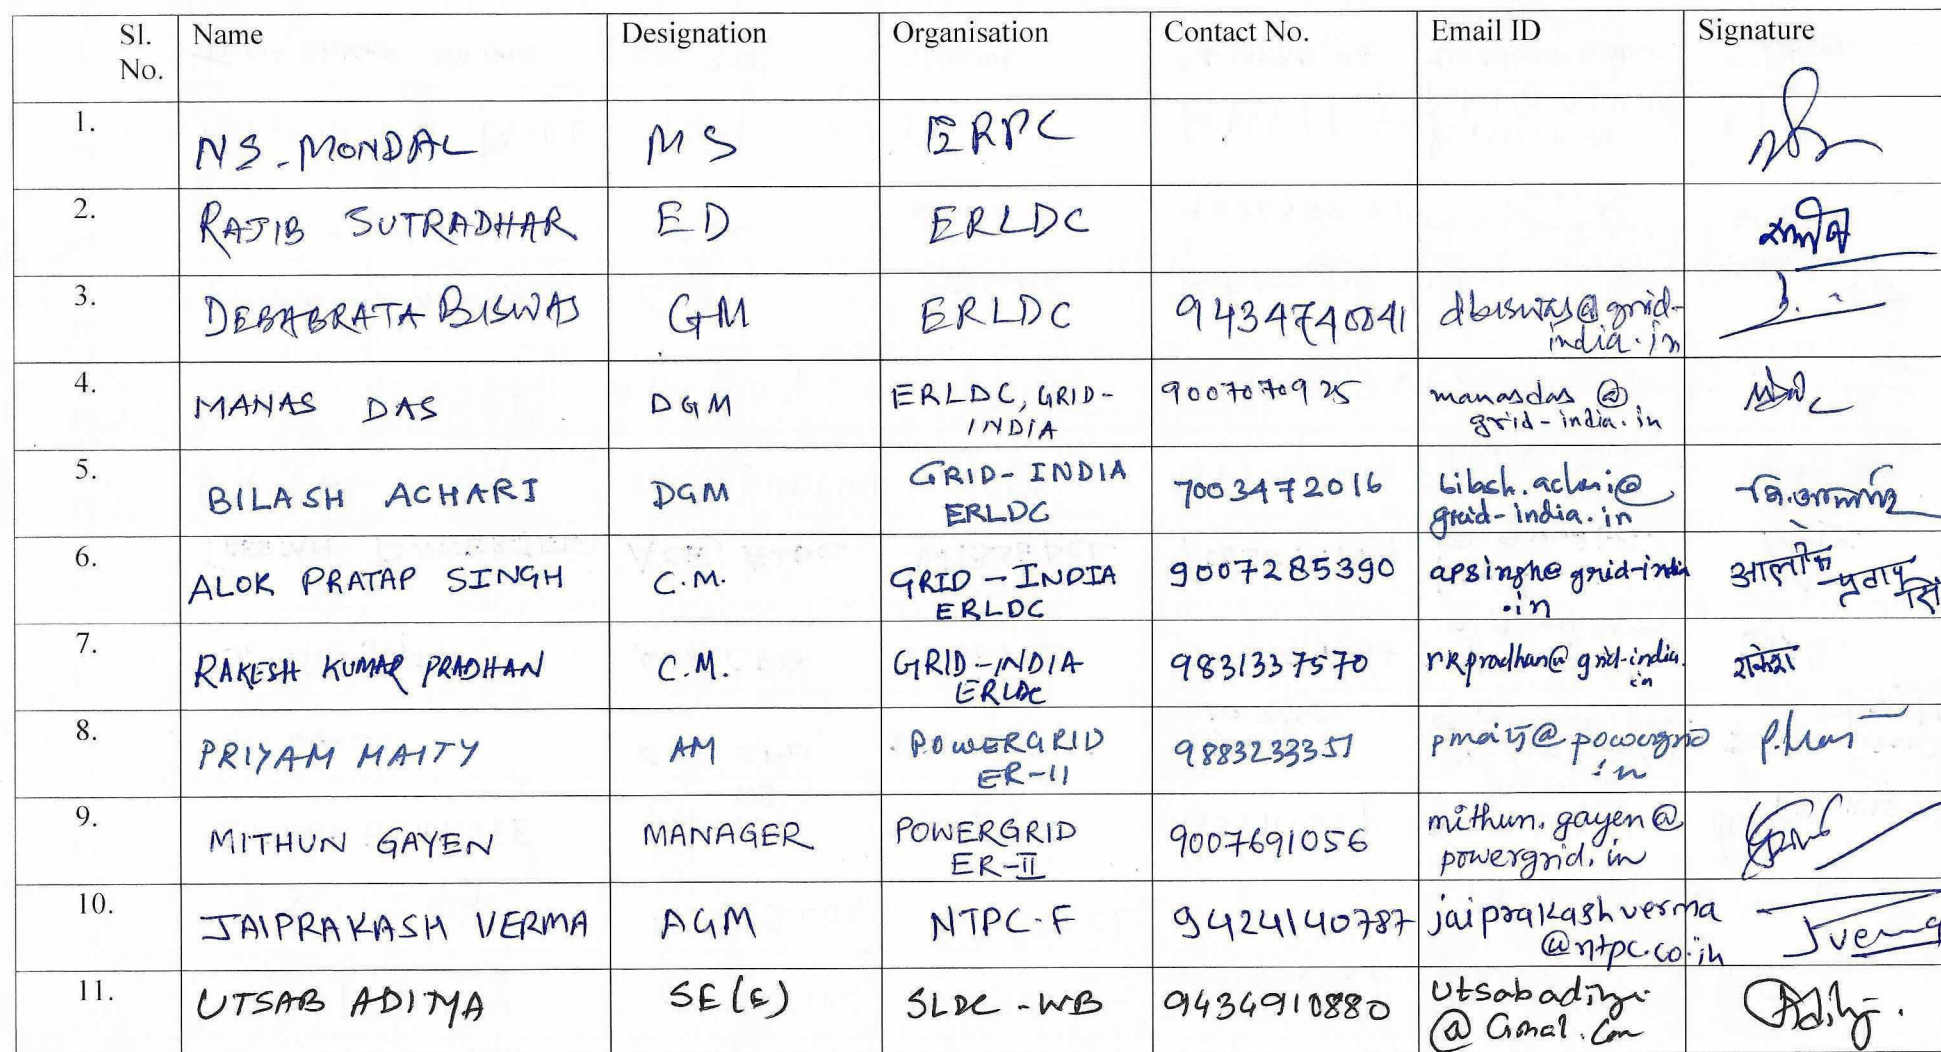 Sl. No. Name Designation Organisation Contact No. Email ID Signature
1. NS. MONDAL MS ERPC
2. RAJIB SUTRADHAR ED ERLDC
3. DEBABRATA BISWAS GM ERLDC 9434740041 dbiswas@grid-
india.in
4. MANAS DAS DGM ERLDC, GRID- 9007070925 manasdas @
INDIA grid-india.in
5. BILASH ACHARI DGM GRID-INDIA 7003472016 bilash.achari@
ERLDC grid-india.in
6. ALOK PRATAP SINGH C.M. GRID-INDIA 9007285390 apsingh@grid-india आलोक प्रताप सिं
ERLDC .in
7. RAKESH KUMAR PRADHAN C.M. GRID-INDIA 9831337570 rkpradhan@grid-india. राकेश
ERLDC in
8. PRIYAM MAITY AM POWERGRID 9883233351
ER-II in
9. MITHUN GAYEN MANAGER POWERGRID 9007691056 mithun.gayen@
ER-II powergrid.in
10. JAIPRAKASH VERMA AGM NTPC-F 9424140787 jaiprakashverma Jverma
@ntpc.co.in
11. UTSAB ADITYA SE(E) SLDC-WB 9434910880 Utsabaditya